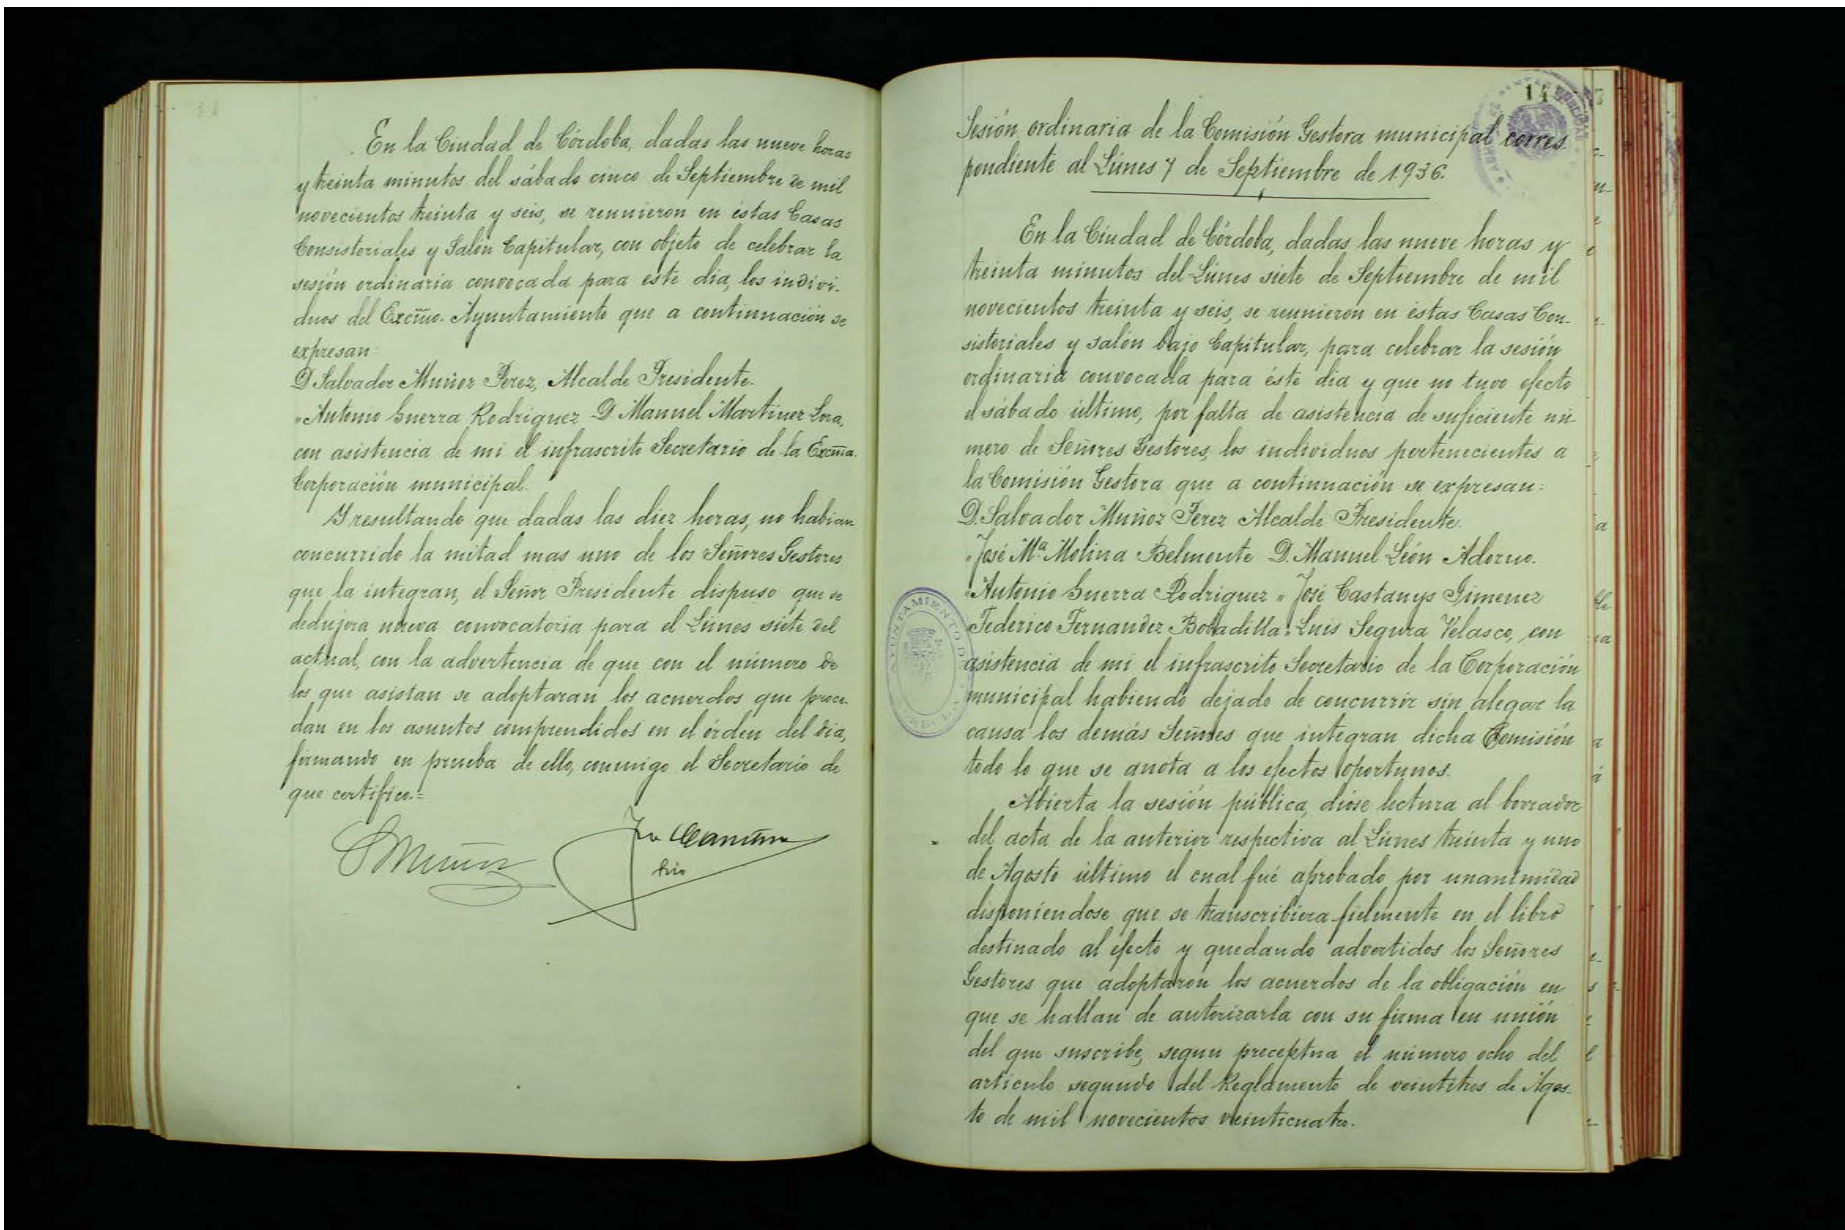 En la Ciudad de Córdoba, dadas las nueve horas
y treinta minutos del sábado cinco de Septiembre de mil
novecientos treinta y seis, se reunieron en éstas Casas
Consistoriales y Salón Capitular, con objeto de celebrar la
sesión ordinaria convocada para éste dia, los indivi-
duos del Excmo. Ayuntamiento que a continuación se
expresan:
D. Salvador Muñoz Perez, Alcalde Presidente.
" Antonio Guerra Rodriguez D. Manuel Martinez Lora,
con asistencia de mi el infrascrito Secretario de la Excma.
Corporación municipal.
Y resultando que dadas las diez horas, no habian
concurrido la mitad mas uno de los Señores Gestores
que la integran, el Señor Presidente dispuso que se
dedujera nueva convocatoria para el Lúnes siete del
actual, con la advertencia de que con el número de
los que asistan se adoptaran los acuerdos que proce-
dan en los asuntos comprendidos en el órden del dia,
firmando en prueba de ello, conmigo el Secretario de
que certifico.=
SMuñoz
14
Sesión ordinaria de la Comisión Gestora municipal corres-
pondiente al Lúnes 7 de Septiembre de 1.936.
En la Ciudad de Córdoba, dadas las nueve horas y
treinta minutos del Lúnes siete de Septiembre de mil
novecientos treinta y seis, se reunieron en éstas Casas Con-
sistoriales y salón bajo Capitular, para celebrar la sesión
ordinaria convocada para éste dia y que no tuvo efecto
el sábado último, por falta de asistencia de suficiente nú-
mero de Señores Gestores, los individuos pertenecientes a
la Comisión Gestora que a continuación se expresan:
D. Salvador Muñoz Perez Alcalde Presidente.
" José Mª Molina Belmonte D. Manuel León Adorno.
" Antonio Guerra Rodriguez " José Castanys Jimenez
" Federico Fernandez Bobadilla " Luis Segura Velasco, con
asistencia de mi el infrascrito Secretario de la Corporación
municipal habiendo dejado de concurrir sin alegar la
causa los demás Señores que integran dicha Comisión
todo lo que se anota a los efectos oportunos.
Abierta la sesión pública, dióse lectura al borrador
del acta de la anterior respectiva al Lúnes treinta y uno
de Agosto último el cual fué aprobado por unanimidad
disponiendose que se transcribiera fielmente en el libro
destinado al efecto y quedando advertidos los Señores
Gestores que adoptaron los acuerdos de la obligación en
que se hallan de autorizarla con su firma en unión
del que suscribe, segun preceptua el número ocho del
articulo segundo del Reglamento de veintitres de Agos-
to de mil novecientos veinticuatro.
AYUNTAMIENTO DE